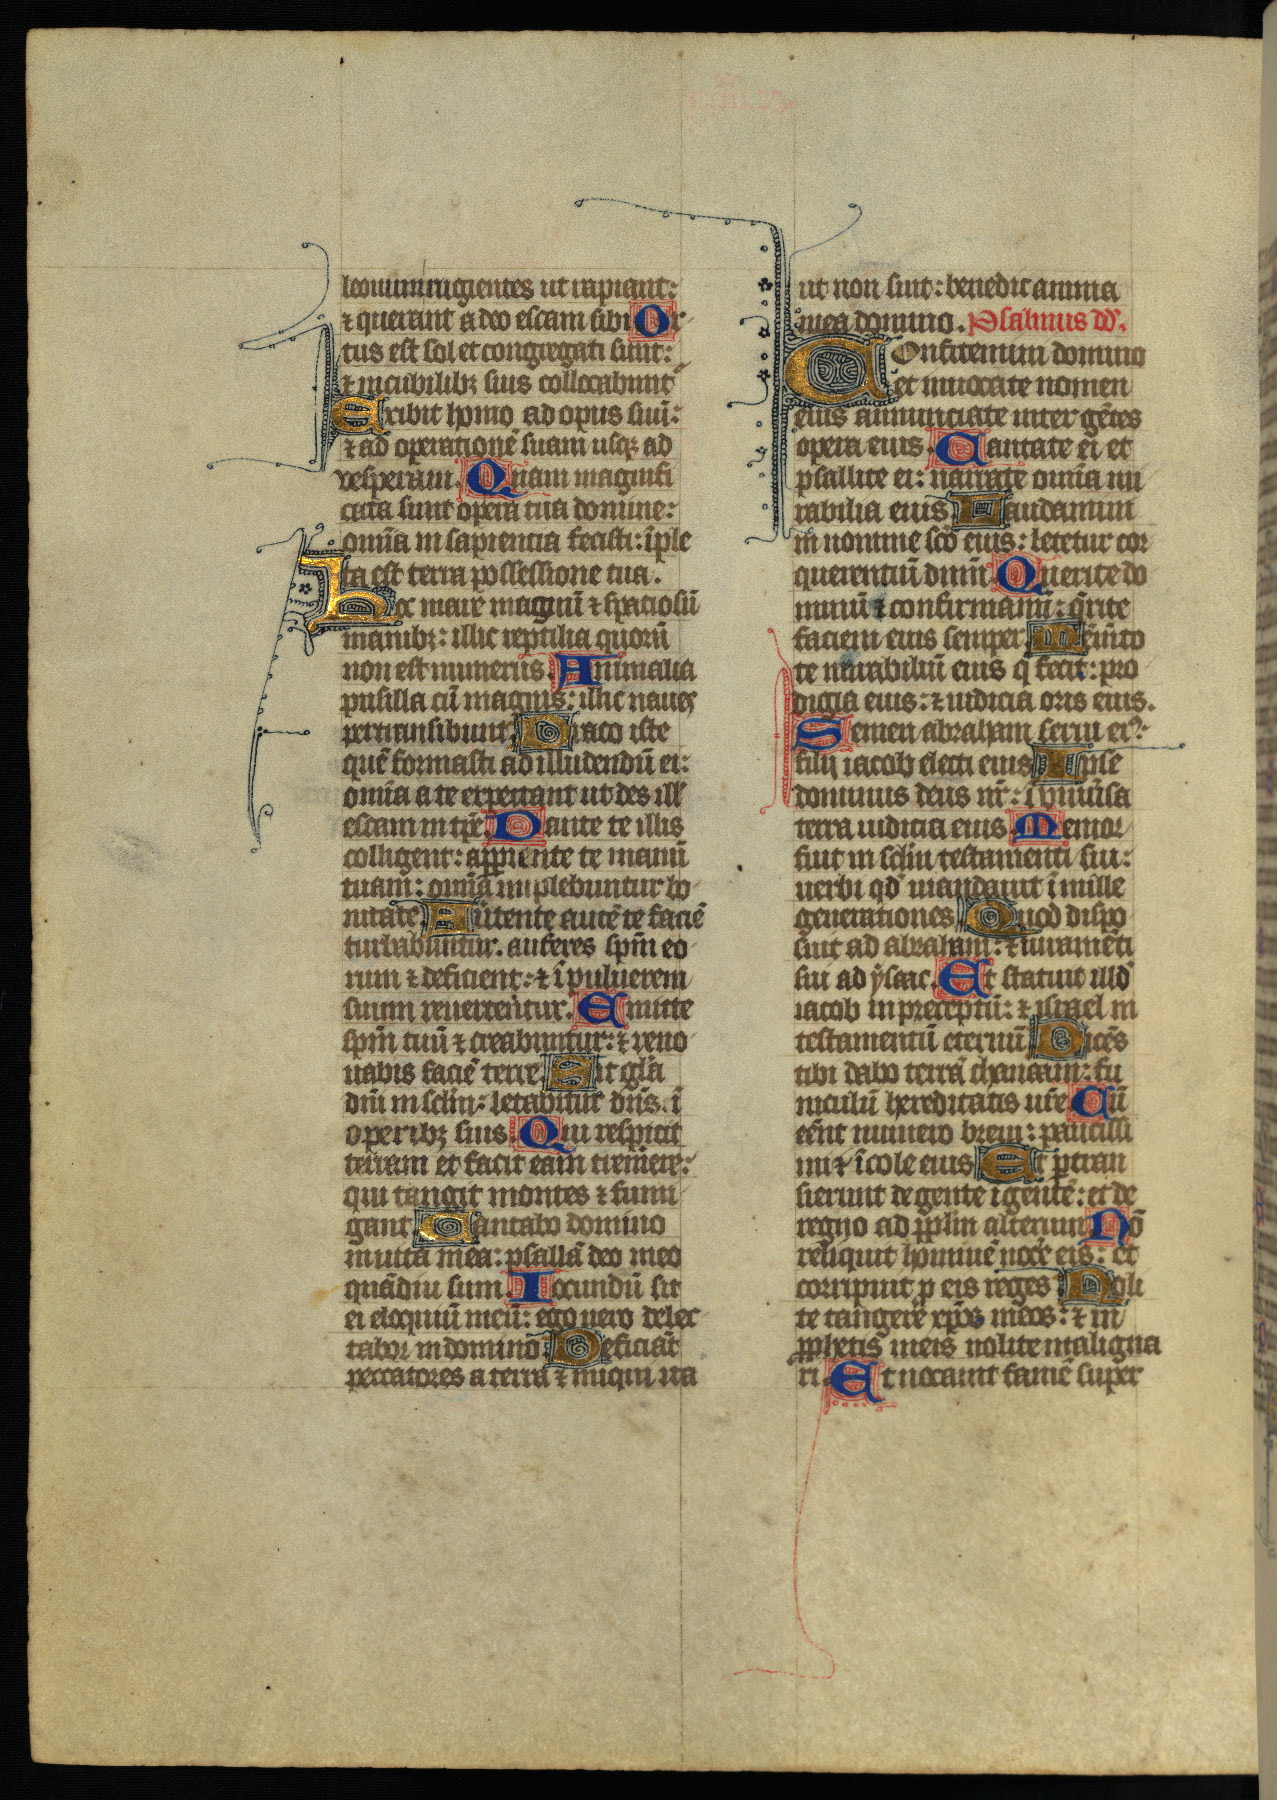 leonum rugientes ut rapiant:
⁊ querant a deo escam sibi. Or
tus est sol et congregati sunt:
⁊ in cubilibꝫ suis collocabunt̉
Exibit homo ad opus suũ:
⁊ ad operationẽ suam usqꝫ ad
vesperam. Quam magnifi
cata sunt opera tua domine:
omĩa in sapientia fecisti: ĩple
ta est terra possessione tua.
Hoc mare magnũ ⁊ spatiosũ
manibꝫ: illic reptilia quorũ
non est numerus. Animalia
pusilla cũ magnis: illic naues
pertransibunt. Draco iste
quẽ formasti ad illudendũ ei:
omĩa a te expectant ut des ill̛
escam in tp̃e. Dante te illis
colligent: apperiente te manũ
tuam: omĩa implebuntur bo
nitate. Auertente autẽ te faciẽ
turbabuntur. auferes sp̃m eo
rum ⁊ deficient: ⁊ ĩ puluerem
suum reuertentur. Emitte
sp̃m tuũ ⁊ creabuntur: ⁊ reno
uabis faciẽ terre. Sit gl̃a
dñi in sc̃lm: letabitur dñs. ĩ
operibꝫ suis. Qui respicit
terram et facit eam tremere:
qui tangit montes ⁊ fumi
gant. Cantabo domino
in uita mea: psallã deo meo
quãdiu sum. Iocundũ sit
ei eloquiũ meũ: ego uero delec
tabor in domino. Deficiãt
peccatores a terra ⁊ iniqui ita
ut non sint: benedic anima
mea domino. Psalmus dd̃.
Confitemini domino
et inuocate nomen
eius annunciate inter gẽtes
opera eius. Cantate ei et
psallite ei: narrate omĩa mi
rabilia eius. Laudamini
in nomine sc̃o eius: letetur cor
querentiũ dñm. Querite do
minũ ⁊ confirmamĩ: q̃rite
faciem eius semper. Memẽto
te mirabiliũ eius q̃ fecit: pro
digia eius: ⁊ iudicia oris eius.
Semen abraham serui eiꝰ:
filij iacob electi eius. Ipse
dominus deus nr̃: ĩ uniũsa
terra iudicia eius. Memor
fuit in sc̃lm testamenti sui:
uerbi qd̃ mandauit ĩ mille
generationes. Quod dispo
suit ad abraham: ⁊ iuramẽti
sui ad ysaac. Et statuit illd̃
iacob in preceptũ: ⁊ israel in
testamentũ eternũ. Dicẽs
tibi dabo terrã chanaan: fu
niculũ hereditatis ur̃e. Cũ
eẽnt numero breui: paucissi
mi ⁊ ĩcole eius. Et ꝑtran
sierunt de gente ĩ gentẽ: et de
regno ad pp̃lm alterum. Nõ
reliquit hominẽ noce̾ eis: et
corripuit ꝓ eis reges. Noli
te tangere xp̃os meos: ⁊ in
ꝓphetis meis nolite maligna
ri. Et uocauit famẽ super